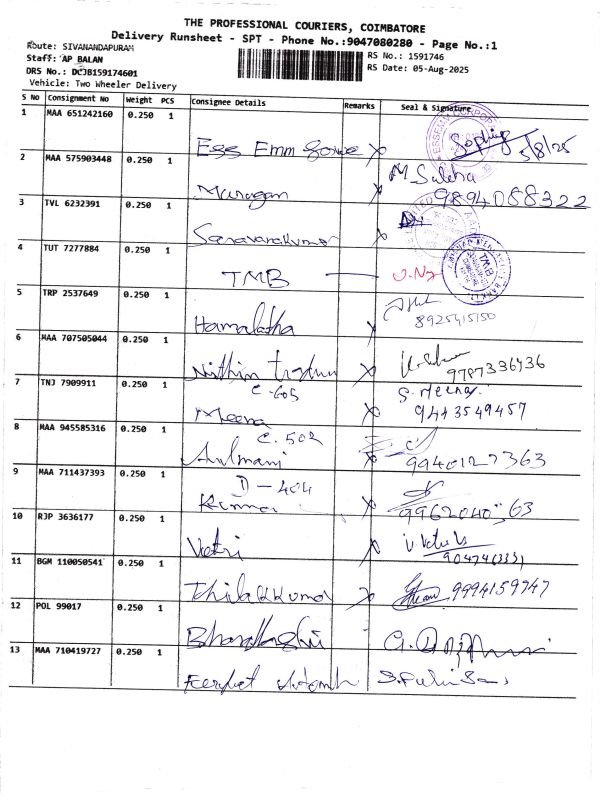 THE PROFESSIONAL COURIERS, COIMBATORE
Delivery Runsheet - SPT - Phone No.:9047080280 - Page No.:1
Route: SIVANANDAPURAM
Staff: AP BALAN
DRS No.: DCJB159174601
Vehicle: Two Wheeler Delivery
RS No.: 1591746
RS Date: 05-Aug-2025
S No Consignment No Weight PCS Consignee Details Remarks Seal & Signature
1 MAA 651242160 0.250 1
Ess Emm X 5/8/25
2 MAA 575903448 0.250 1
Murugan X M 9894088322
3 TVL 6232391 0.250 1
Saravanakumar X
4 TUT 7277884 0.250 1
TMB TMB
5 TRP 2537649 0.250 1
Hamalatha X 8925415150
6 MAA 707505044 0.250 1
Nithin X 9787336436
7 TNJ 7909911 0.250 1
C-605
Meena X S. Meena 9443549457
8 MAA 945585316 0.250 1
C-502
Arulmani X 9940127363
9 MAA 711437393 0.250 1
D-404
Kumar X
10 RJP 3636177 0.250 1
Vetri X
11 BGM 110050541 0.250 1
Thilakkumar X 9994159747
12 POL 99017 0.250 1
13 MAA 710419727 0.250 1